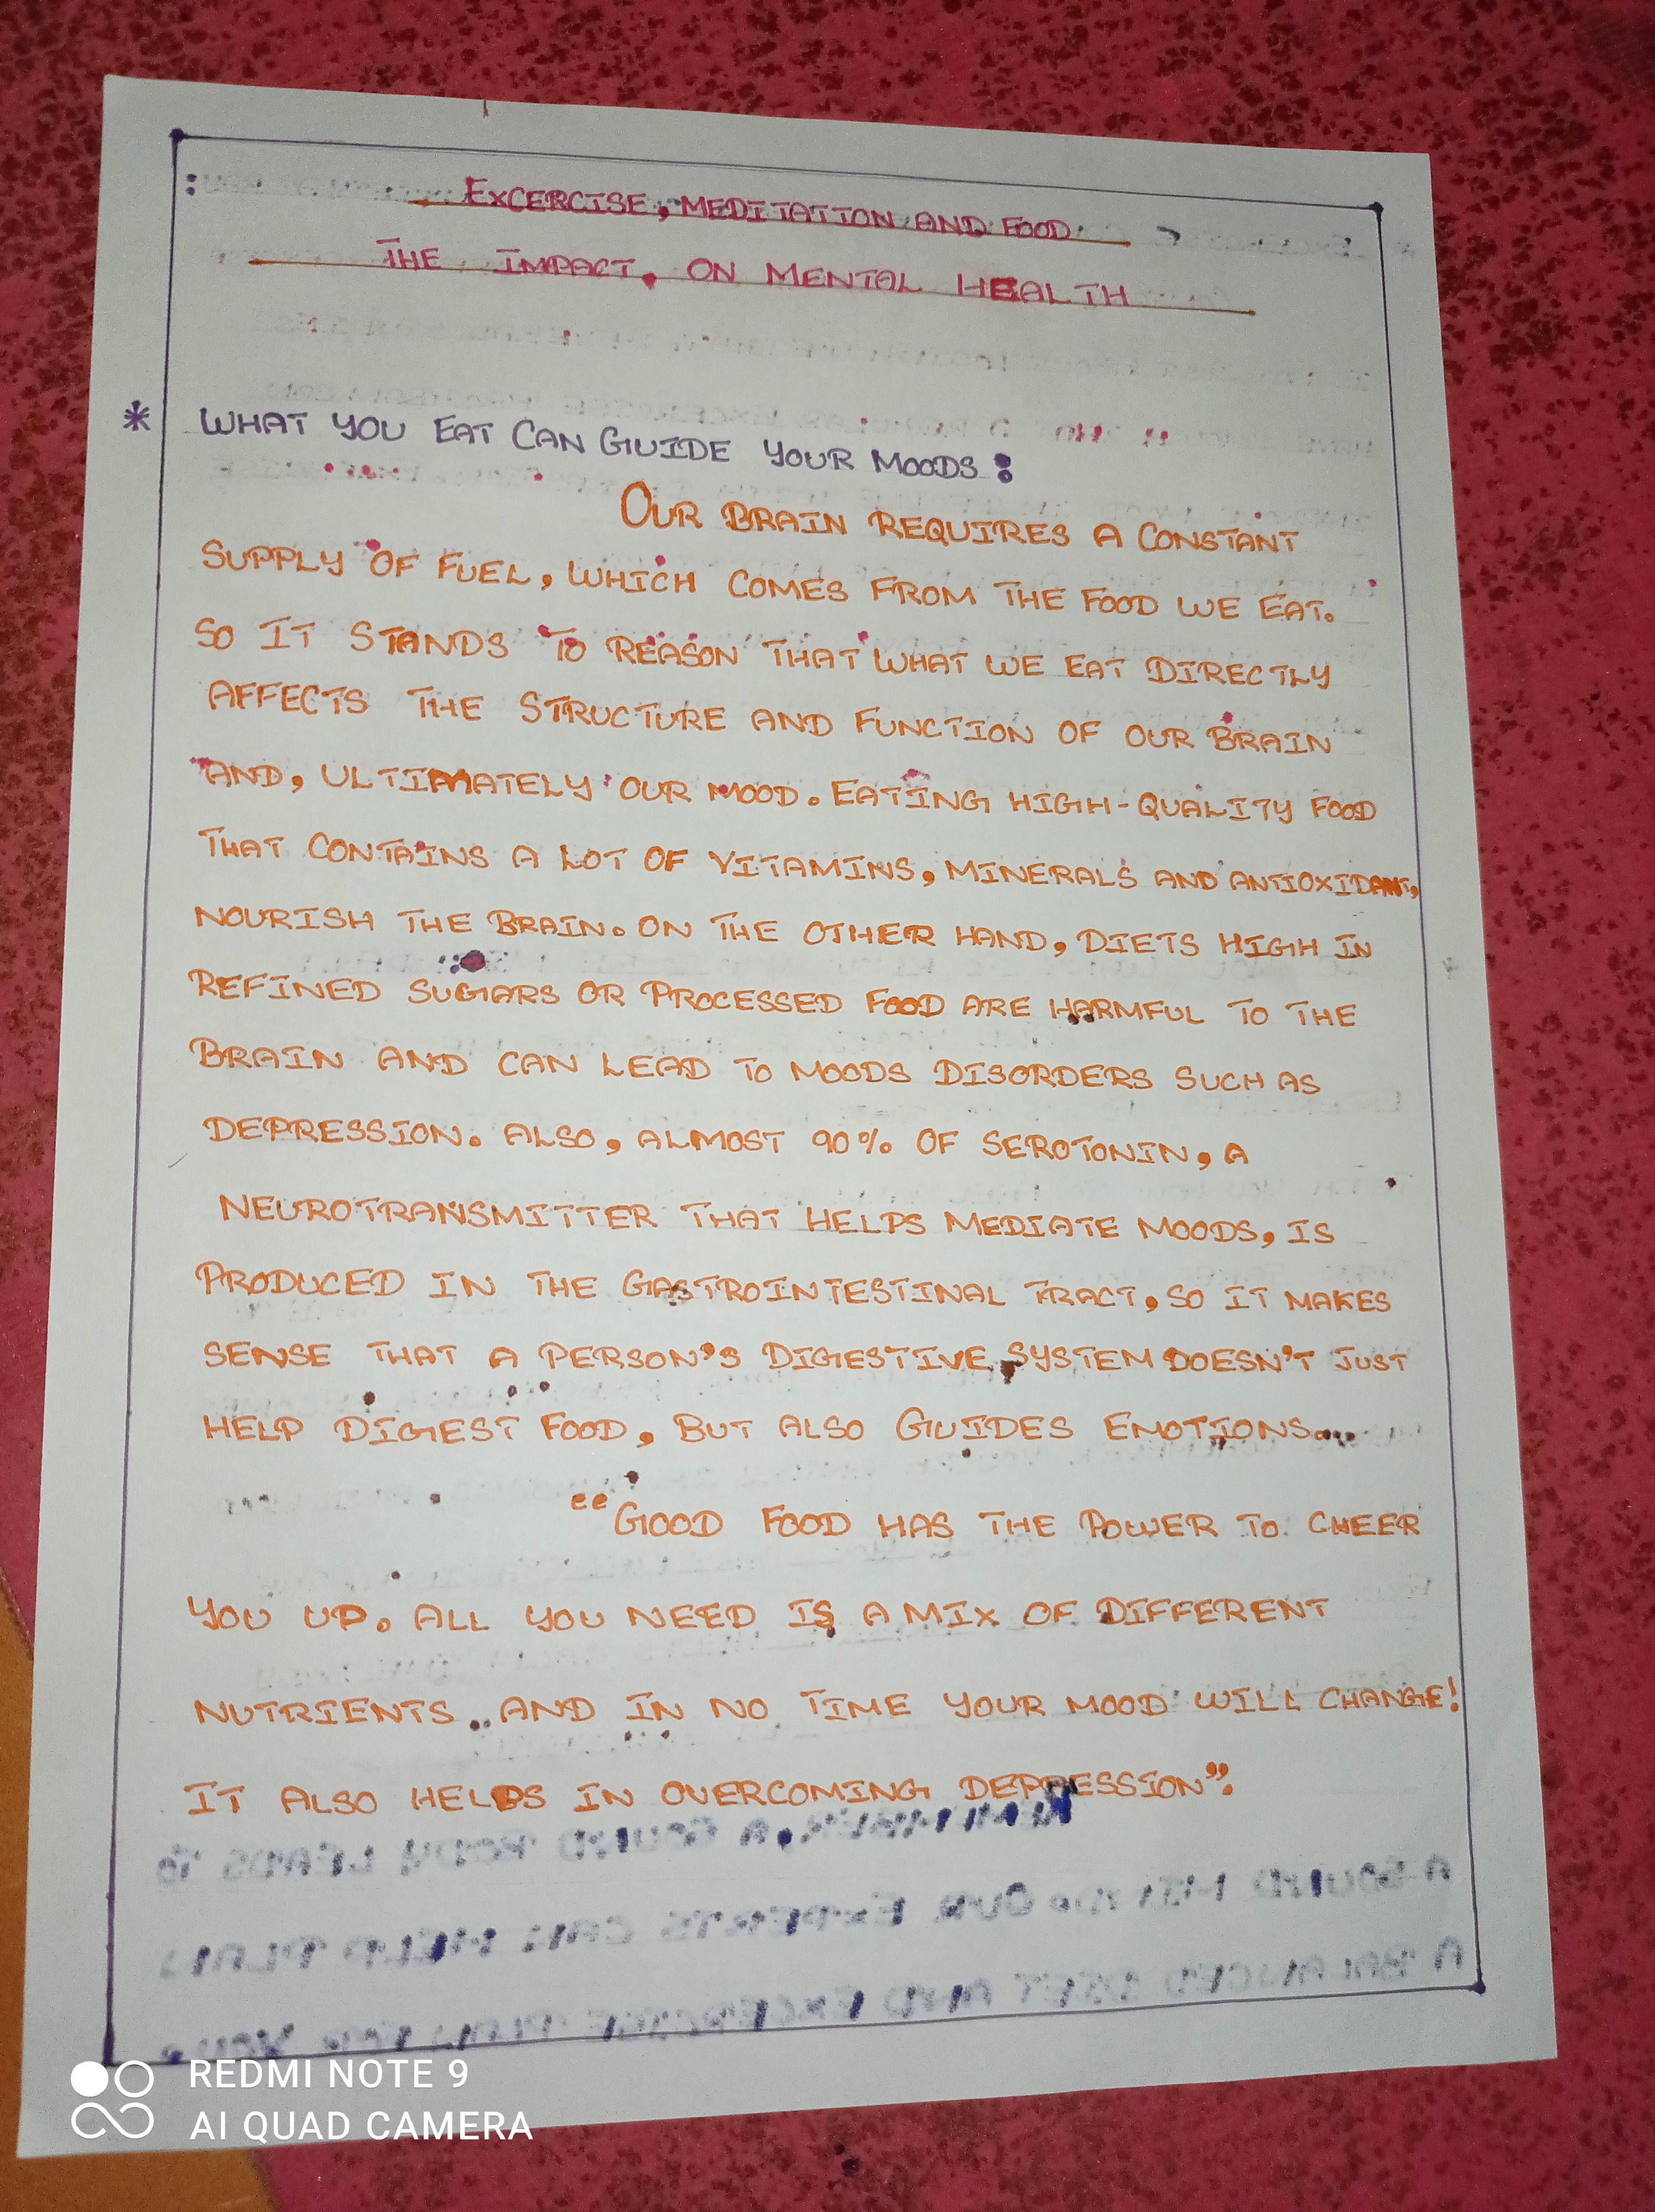 EXCERCISE, MEDITATION AND FOOD
THE IMPACT, ON MENTAL HEALTH
* WHAT YOU EAT CAN GUIDE YOUR MOODS:
OUR BRAIN REQUIRES A CONSTANT
SUPPLY OF FUEL, WHICH COMES FROM THE FOOD WE EAT.
SO IT STANDS TO REASON THAT WHAT WE EAT DIRECTLY
AFFECTS THE STRUCTURE AND FUNCTION OF OUR BRAIN
AND, ULTIMATELY OUR MOOD. EATING HIGH-QUALITY FOOD
THAT CONTAINS A LOT OF VITAMINS, MINERALS AND ANTIOXIDANT,
NOURISH THE BRAIN. ON THE OTHER HAND, DIETS HIGH IN
REFINED SUGARS OR PROCESSED FOOD ARE HARMFUL TO THE
BRAIN AND CAN LEAD TO MOODS DISORDERS SUCH AS
DEPRESSION. ALSO, ALMOST 90% OF SEROTONIN, A
NEUROTRANSMITTER THAT HELPS MEDIATE MOODS, IS
PRODUCED IN THE GASTROINTESTINAL TRACT, SO IT MAKES
SENSE THAT A PERSON'S DIGESTIVE SYSTEM DOESN'T JUST
HELP DIGEST FOOD, BUT ALSO GUIDES EMOTIONS...
"GOOD FOOD HAS THE POWER TO CHEER
YOU UP. ALL YOU NEED IS A MIX OF DIFFERENT
NUTRIENTS.. AND IN NO TIME YOUR MOOD WILL CHANGE!
IT ALSO HELPS IN OVERCOMING DEPRESSION".
REDMI NOTE 9
AI QUAD CAMERA